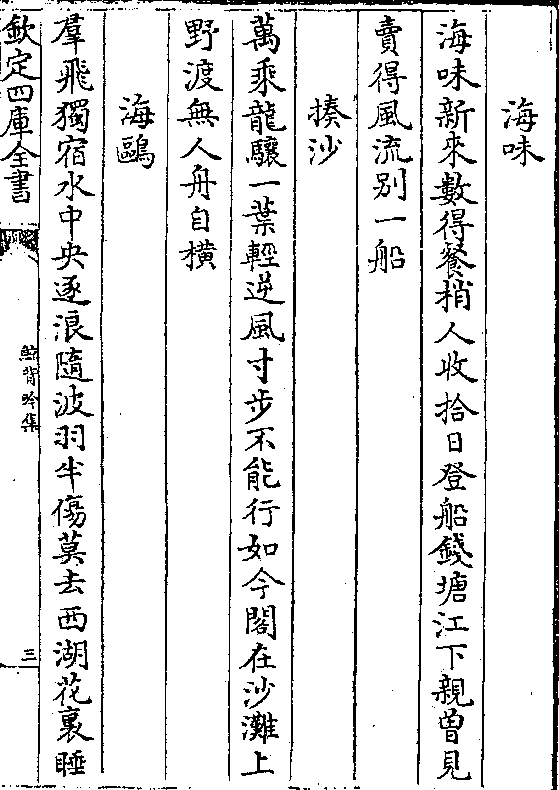 海味
海味新來數得餐梢人收拾日登船錢塘江下親曾見
賣得風流别一船
揍沙
萬乘龍驤一葉輕逆風寸步不能行如今閣在沙灘上
野渡無人舟自横
海鷗
羣飛獨宿水中央逐浪隨波羽半傷莫去西湖花裏睡
欽定四庫全書
鯨背吟集
三